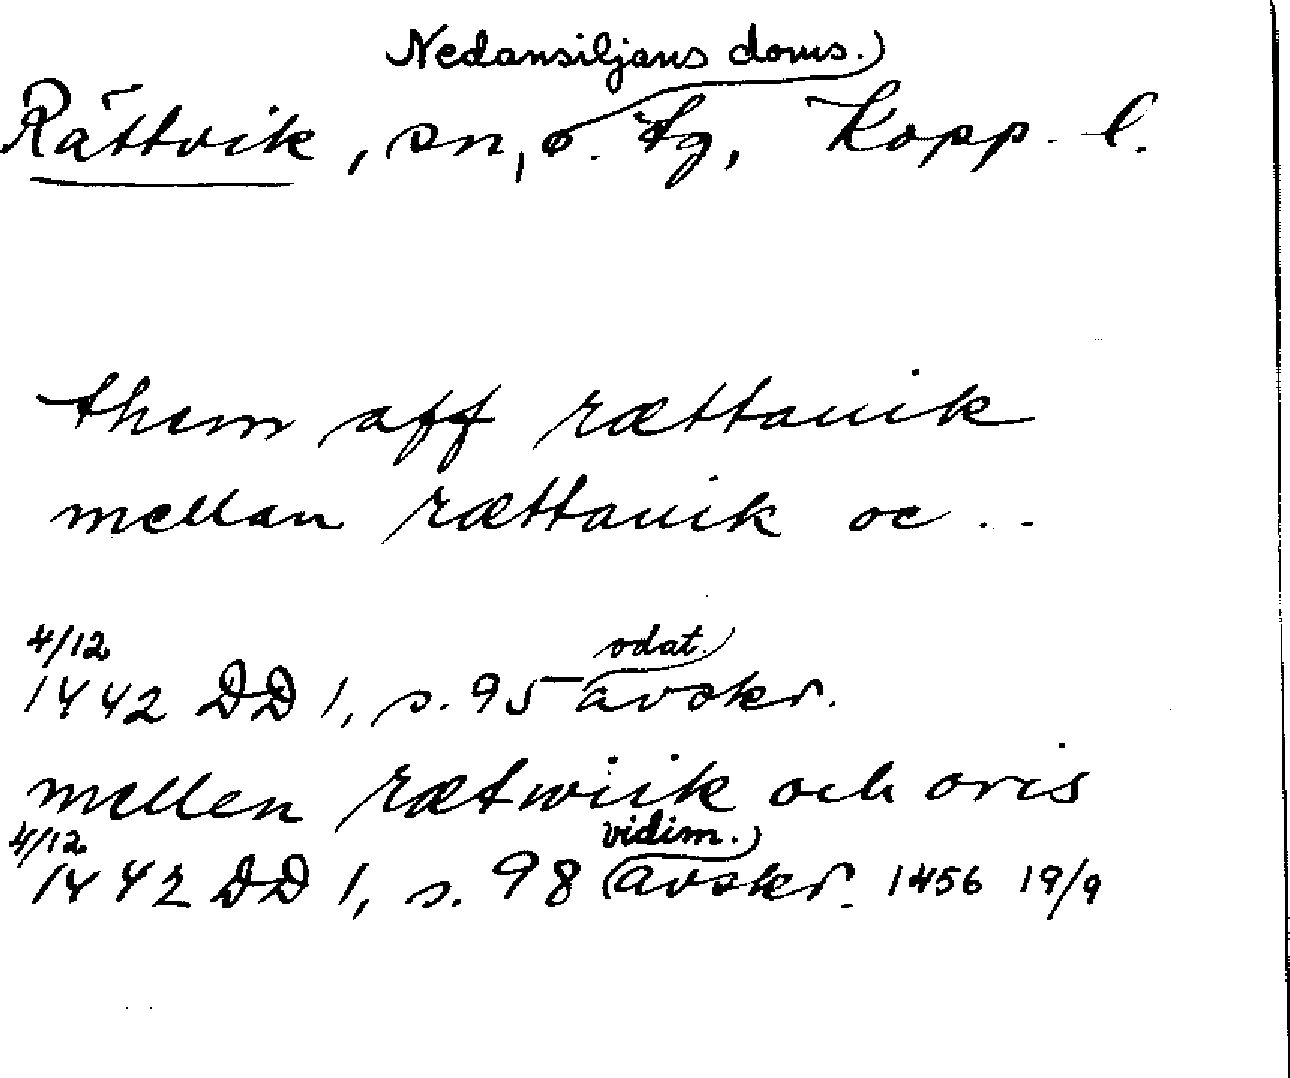 Nedansiljans doms.
Rättvik, sn, o. tg, Kopp. l.
them aff rættauik
mellan rættauik oc ..
4/12 odat.
1442 DD 1, s. 95 avskr.
mellen rætwiik och oris
4/12 vidim.
1442 DD 1, s. 98 avskr. 1456 19/9